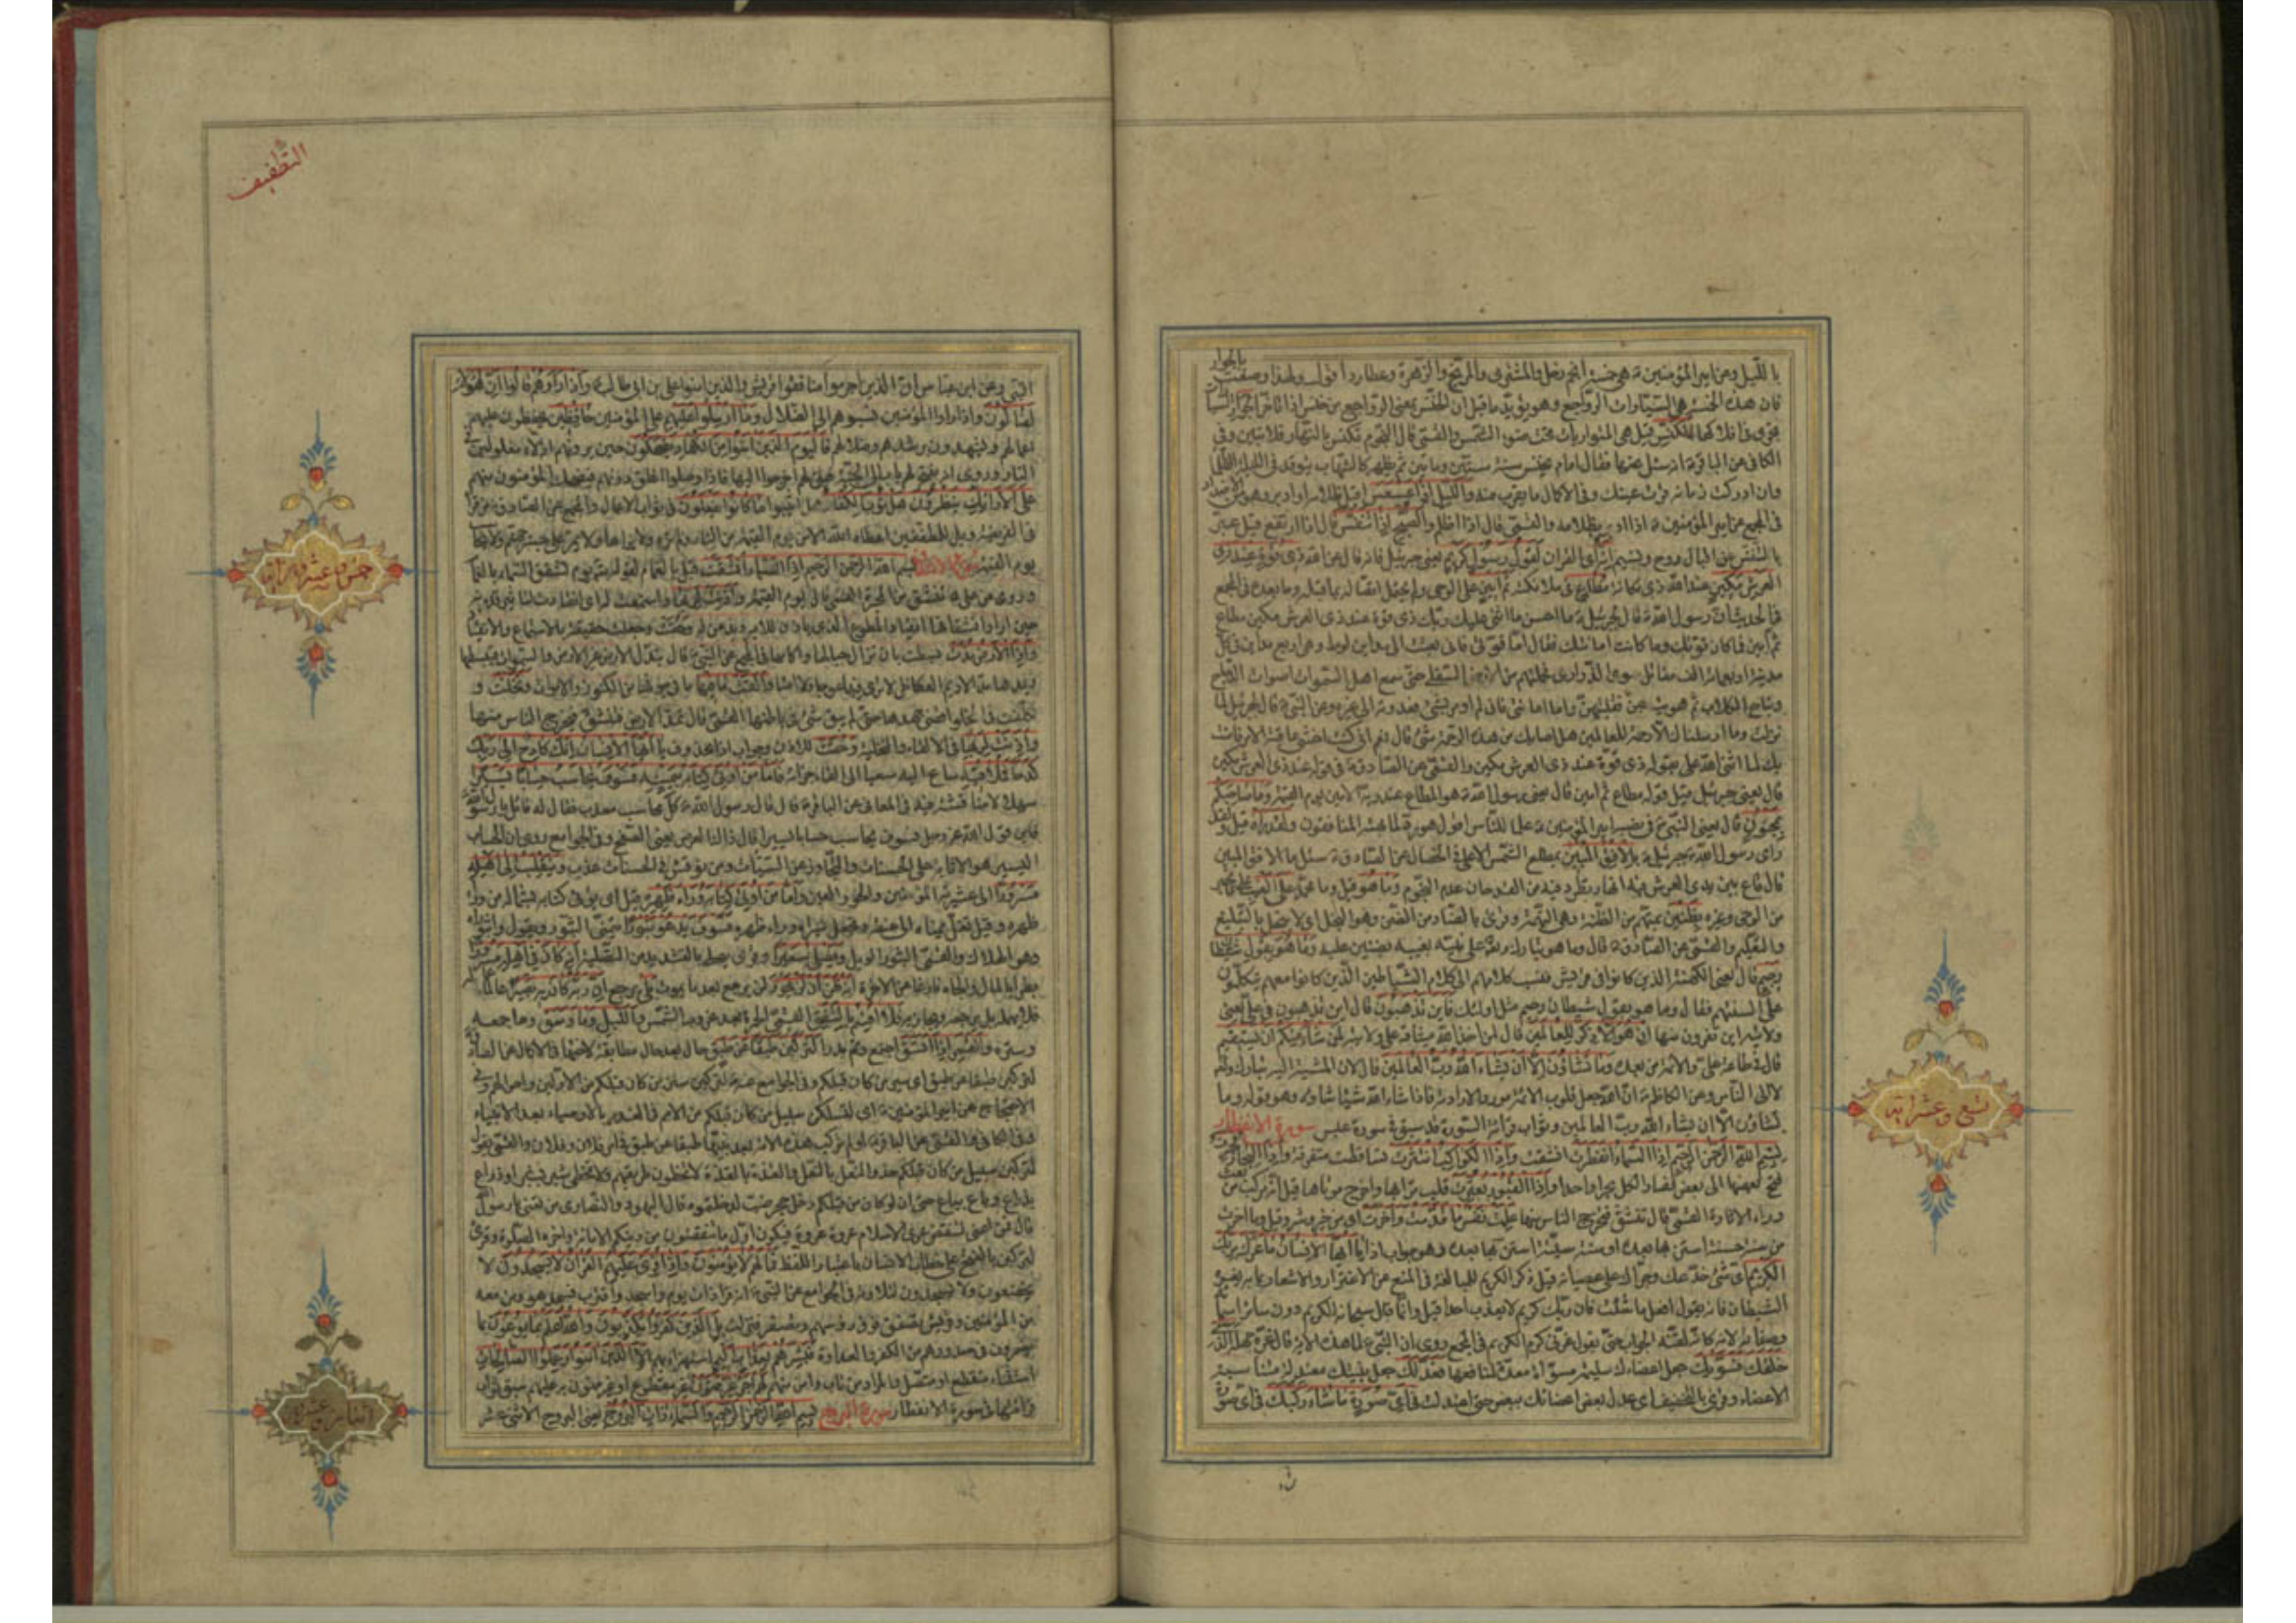 بالجوار
بالليل وعن امير المؤمنين ع هي خمسة انجم زحل والمشتري والمريخ والزهرة وعطارد اقول ولهذا وصفت
فان هذه الخنس هي السيارات الرواجع وهو يؤيد ما قيل ان الخنس يعني الرواجع من خنس اذا تاخر
الكافي عن الباقر ع انه سئل عنها فقال امام يخنس سنة ستين ومأتين ثم يظهر كالشهاب يتوقد في الليلة الظلماء
وان ادركت زمانه قرت عينك وفي الاكمال ما يقرب منه والليل اذا عسعس اقبل ظلامه او ادبر وهو من الاضداد
في المجمع عن امير المؤمنين ع اذا ادبر بظلامه والقمي قال اذا اظلم والصبح اذا تنفس قال اذا ارتفع قيل عبر
بالتنفس عن اقبال روح ونسيم انه اي القران لقول رسول كريم يعني جبرئيل فانه قال عن الله ذي قوة عند ذي
العرش مكين عند الله ذي مكانة مطاع في ملائكته ثم امين على الوحي
في الحديث ان رسول الله ص قال لجبرئيل ع ما احسن ما اثنى عليك ربك ذي قوة عند ذي العرش مكين مطاع
ثم امين فما كان قوتك وما كانت امانتك فقال اما قوتي فاني بعثت الى مداين لوط وهي اربع مداين في كل
مدينة اربعمائة الف مقاتل سوى الذراري فحملتهم من الارض السفلى حتى سمع اهل السموات اصوات الدجاج
ونباح الكلاب ثم هويت بهن فقلبتهن واما امانتي فاني لم اومر بشئ فعدوته الى غيره وعن النبي ص قال لجبرئيل لما
نزلت وما ارسلناك الا رحمة للعالمين هل اصابك من هذه الرحمة شئ قال نعم اني كنت اخشى عاقبة الامر فامنت
بك لما اثنى الله علي بقوله ذي قوة عند ذي العرش مكين والقمي عن الصادق ع في قوله عند ذي العرش مكين
قال يعني جبرئيل قيل قوله مطاع ثم امين قال يعني رسول الله ص هو المطاع عند ربه الامين يوم القيمة وما صاحبكم
بمجنون قال يعني النبي ص في نصبه امير المؤمنين ع علما للناس
راى رسول الله ص جبرئيل ع بالافق المبين بمطلع الشمس الاعلى في الخصال عن الصادق ع سئل ما الافق المبين
قال قاع بين يدي العرش فيه انهار تطرد فيه من القدحان عدد النجوم وما هو قيل وما محمد على الغيب
من الوحي وغيره بظنين بمتهم من الظنة وهي التهمة وقرئ بالضاد من الضن وهو البخل اي لا يبخل بالتبليغ
والتعليم والقمي عن الصادق ع قال وما هو تبارك وتعالى على نبيه بغيبه بضنين عليه وما هو بقول شيطان
رجيم قال يعني الكهنة الذين كانوا في قريش فنسب كلامهم الى كلام الشياطين الذين كانوا معهم يتكلمون
على السنتهم فقال وما هو بقول شيطان رجيم مثل اولئك فاين تذهبون قال اين تذهبون في علي يعني
ولايته اين تفرون منها ان هو الا ذكر للعالمين قال لمن اخذ الله ميثاقه على ولايته لمن شاء منكم ان يستقيم
قال في طاعة علي والائمة من بعده وما تشاؤن الا ان يشاء الله رب العالمين قال لان المشية اليه تبارك وتعالى
لا الى الناس وعن الكاظم ع ان الله جعل قلوب الائمة موردا لارادته فاذا شاء الله شيئا شاؤه وهو قوله وما
تشاؤن الا ان يشاء الله رب العالمين وثواب قراءة السورة قد سبق في سورة عبس سورة الانفطار
بسم الله الرحمن الرحيم اذا السماء انفطرت انشقت واذا الكواكب انتثرت تساقطت متفرقة واذا البحار فجرت
فتح بعضها الى بعض فصار الكل بحرا واحدا واذا القبور بعثرت قلب ترابها واخرج موتاها
قال تنشق فيخرج الناس منها علمت نفس ما قدمت واخرت اي من خير وشر وقيل وما اخرت
من سنة حسنة استن بها بعده او سنة سيئة استن بها بعده وهو جواب اذا يا ايها الانسان ما غرك بربك
الكريم اي شئ خدعك وجراك على عصيانه قيل ذكر الكريم للمبالغة في المنع عن الاغترار والاشعار بما به يغره
الشيطان فانه يقول افعل ما شئت فان ربك كريم لا يعذب احدا وقيل وانما قال سبحانه الكريم دون سائر اسمائه
وصفاته لانه كانه لقنه الجواب حتى يقول غرني كرم الكريم في المجمع روي ان النبي ص لما تلا هذه الاية قال غره جهله الذي
خلقك فسويك جعل اعضاءك سليمة مسواة معدة لمنافعها فعدلك جعل بنيتك معتدلة متناسبة
الاعضاء وقرئ بالتخفيف اي عدل بعض اعضائك ببعض حتى اعتدلت في اي صورة ما شاء ركبك
تسع وعشر اية
التطفيف
وعن ابن عباس ان الذين اجرموا منافقوا قريش والذين امنوا علي بن ابي طالب ع واذا راوهم قالوا ان هؤلاء
لضالون واذا راوا المؤمنين نسبوهم الى الضلال وما ارسلوا عليهم على المؤمنين حافظين يحفظون عليهم
اعمالهم ويشهدون برشدهم وضلالهم فاليوم الذين امنوا من الكفار يضحكون حين يرونهم اذلاء مغلولين في
النار وروي انه يفتح لهم باب الى الجنة فيقال لهم اخرجوا اليها فاذا وصلوا اغلق دونهم فيضحك المؤمنون منهم
على الارائك ينظرون هل ثوب الكفار هل اثيبوا ما كانوا يفعلون في ثواب الاعمال والمجمع عن الصادق ع من قرأ
في الفريضة ويل للمطففين اعطاه الله الامن يوم القيمة من النار ولم تره ولا يراها ولا يمر على جسر جهنم ولا يحاسب
يوم القيمة سورة الانشقاق بسم الله الرحمن الرحيم اذا السماء انشقت قيل بالغمام لقوله يوم تشقق السماء بالغمام
وروي عن علي ع تنشق من المجرة القمي قال يوم القيمة واذنت لربها واستمعت له
وحقت وجعلت حقيقة بالاستماع والانقياد
واذا الارض مدت بسطت بان تزال جبالها واكامها في المجمع عن النبي ص قال تبدل الارض غير الارض والسموات فيبسطها
ويمدها مد الاديم العكاظي لا ترى فيها عوجا ولا امتا والقت ما فيها ما في جوفها من الكنوز والاموات وتخلت و
القمي قال تمد الارض فتنشق فيخرج الناس منها
واذنت لربها في الالقاء والتخلية وحقت للاذن وجواب اذا محذوف يا ايها الانسان انك كادح الى ربك
كدحا فملاقيه ساع اليه سعيا الى لقاء جزائه فاما من اوتي كتابه بيمينه فسوف يحاسب حسابا يسيرا
سهلا لا مناقشة فيه في المعاني عن الباقر ع قال قال رسول الله ص كل محاسب معذب فقال له قائل يا رسول الله
فاين قول الله عز وجل فسوف يحاسب حسابا يسيرا قال ذاك العرض يعني التصفح وفي الجوامع روي ان الحساب
اليسير هو الاثابة على الحسنات والتجاوز عن السيئات ومن نوقش في الحساب عذب وينقلب الى اهله
مسرورا الى عشيرته المؤمنين والحور العين واما من اوتي كتابه وراء ظهره قيل اي يؤتى كتابه بشماله من وراء
ظهره وقيل تغل يمناه الى عنقه وتجعل يسراه وراء ظهره فسوف يدعو ثبورا يتمنى الثبور ويقول واثبوراه
وهو الهلاك والقمي الثبور الويل ويصلى سعيرا وقرئ يصلى بالتشديد من التصلية انه كان في اهله مسرورا
بطرا بالمال والجاه فارغا عن الاخرة انه ظن ان لن يحور لن يرجع بعد ما يموت بلى يرجع ان ربه كان به بصيرا عالما
فلا يهمله بل يرجعه ويجازيه فلا اقسم بالشفق القمي الحمرة بعد غروب الشمس والليل وما وسق وما جمعه
وستره والقمر اذا اتسق اجتمع وتم بدرا لتركبن طبقا عن طبق حال بعد حال مطابقة لاختها في الاكمال عن الصادق
لتركبن طبقا عن طبق اي سير من كان قبلكم وفي الجوامع عنه ع لتركبن سنن من كان قبلكم من الاولين واحوالهم وفي
الاحتجاج عن امير المؤمنين ع اي لتسلكن سبيل من كان قبلكم من الامم في الغدر بالاوصياء بعد الانبياء
وفي الكافي والقمي عن الباقر ع او لم تركب هذه الامة بعد نبيها طبقا عن طبق في امر فلان وفلان والقمي يقول
لتركبن سبيل من كان قبلكم حذو النعل بالنعل والقذة بالقذة لا تخطئون طريقهم ولا يخطى شبر بشبر وذراع
بذراع وباع بباع حتى ان لو كان من قبلكم دخل جحر ضب لدخلتموه قال اليهود والنصارى من تعني يا رسول الله
قال فمن اعني لتنقضن عرى الاسلام عروة عروة فيكون اول ما تنقضون من دينكم الامانة واخره الصلوة وقرئ
لتركبن بالفتح على خطاب الانسان باعتبار اللفظ فما لهم لا يؤمنون واذا قرئ عليهم القران لا يسجدون لا
يخضعون ولا يسجدون لتلاوته في الجوامع عن النبي ص انه قرأ ذات يوم واسجد واقترب فسجد هو ومن معه
من المؤمنين وقريش تصفق فوق رؤسهم وتصفر فنزلت بل الذين كفروا يكذبون والله اعلم بما يوعون بما
يضمرون في صدورهم من الكفر والعداوة فبشرهم بعذاب اليم استهزاء بهم الا الذين امنوا وعملوا الصالحات
استثناء منقطع او متصل والمراد من تاب وامن منهم لهم اجر غير ممنون غير مقطوع او غير ممنون به عليهم سبق ثواب
قراءتها في سورة الانفطار سورة البروج بسم الله الرحمن الرحيم والسماء ذات البروج يعني البروج الاثنى عشر
خمس وعشرون اية
اثنتان وعشرون اية